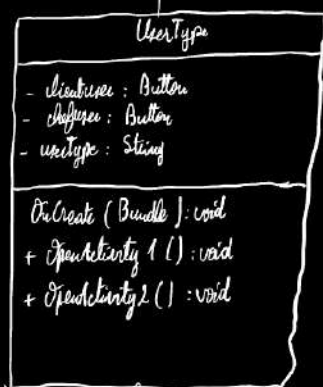 UserType
- clientuser : Button
- chefuser : Button
- usertype : String
OnCreate (Bundle) : void
+ OpenActivity 1 () : void
+ OpenActivity 2 () : void